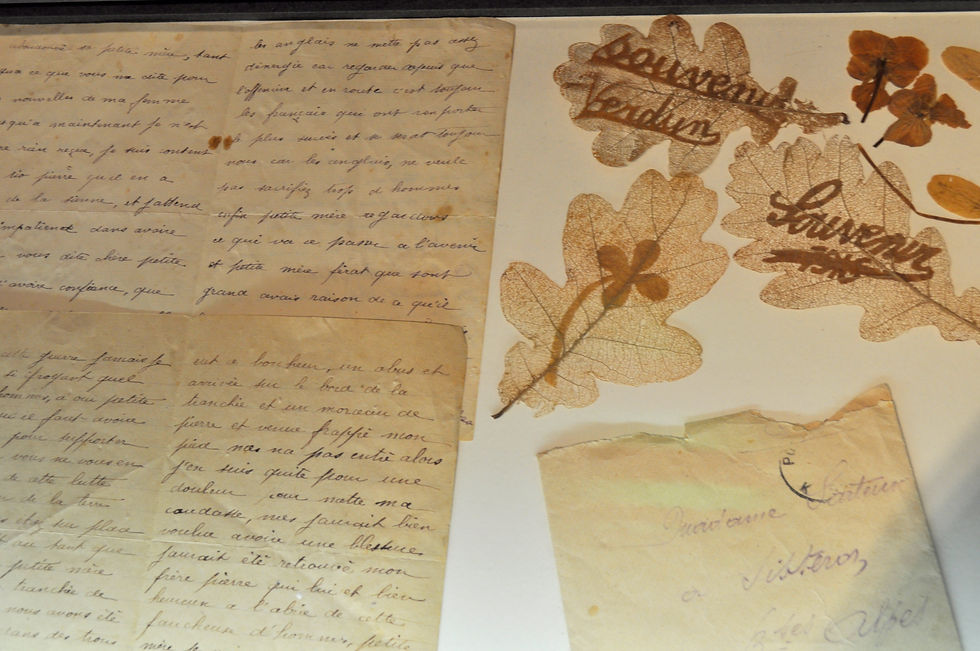 sa petite mère, tant
ce que vous me dite pour
nouvelles de ma femme
qu'a maintenant je n'est
rien reçue, je suis content
pierre qu'il en a
de la sienne, et j'attend
impatience dans avoire
vous dite chère petite
avoire confiance, que
les anglais ne mette pas assez
d'énergie car regarder depuis que
l'offensive et en route c'est toujour
les français qui ont remporter
le plus succès et se serat toujour
nous car les anglais, ne veule
pas sacrifiez trop d hommes
enfin petite mère regardons
ce qui va ce passer a l'avenir
et petite mère
grand avais raison de ce qu'il
cette guerre jamais je
si froyant quel
hommes, a oui petite
ce faut avoire
pour supporter
vous ne vous en
de cette lutte
de la terre
sur place
tant que
petite mère
tranchée de
nous avons été
dans des trous
eut ce bonheur, un obus et
arrivée sur le bord de la
tranchée et un morceau de
pierre et venue frappé mon
pied mes na pas entré alors
j'en suis quite pour une
douleur, mes jaurait bien
voulue avoire une blessure
jaurait été retrouvé mon
frère pierre qui lui et bien
heureux a l'abrie de cette
faucheuse d'hommes, petite
mère je
Souvenir
Verdun
Souvenir
1916
Madame
a Sisteron
Alpes